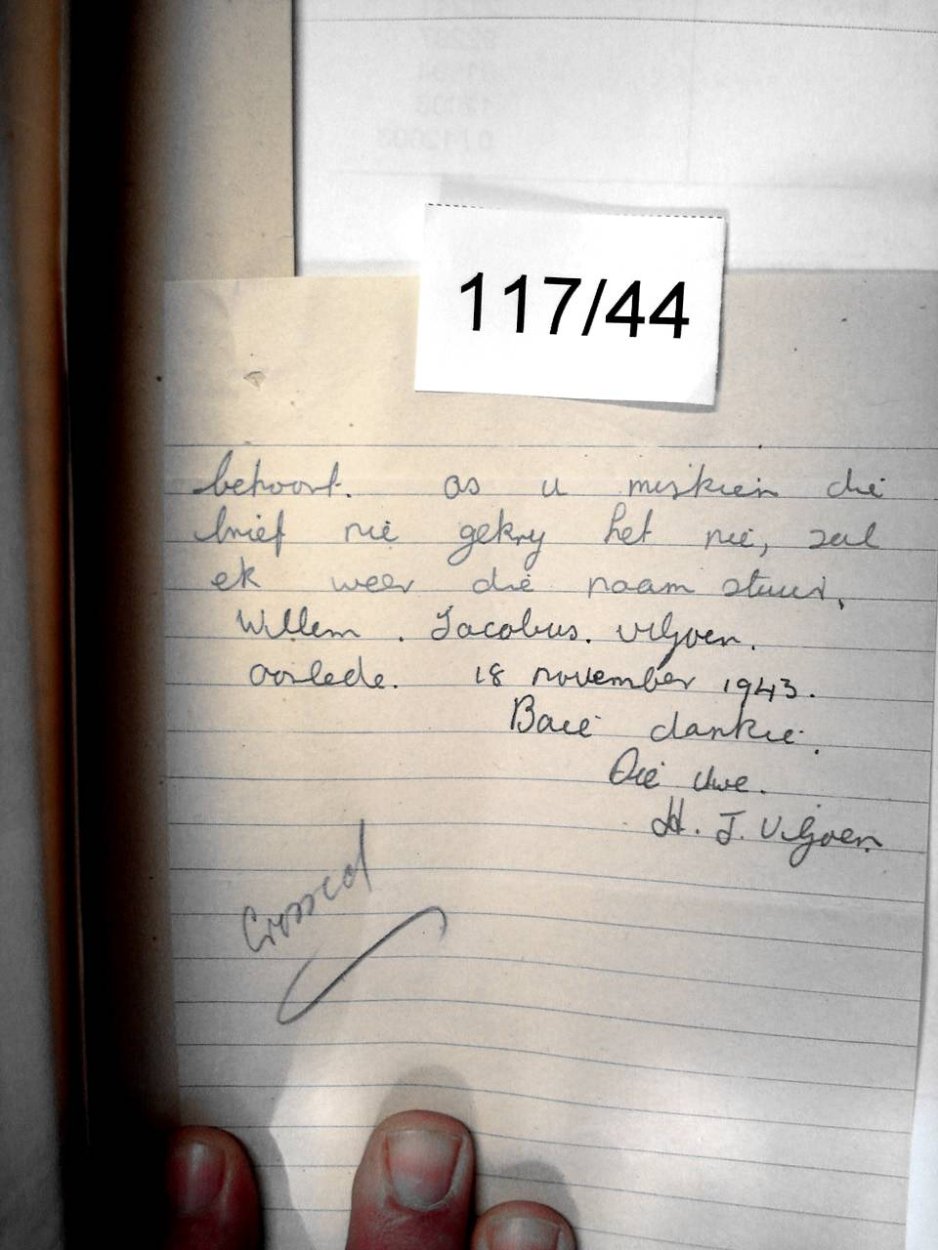 117/44
behoort. as u miskien die
brief nie gekry het nie, sal
ek weer die naam stuur,
Willem. Jacobus. Viljoen.
Oorlede. 18 november 1943.
Baie dankie.
Die Uwe.
H. J. Viljoen
Crossed